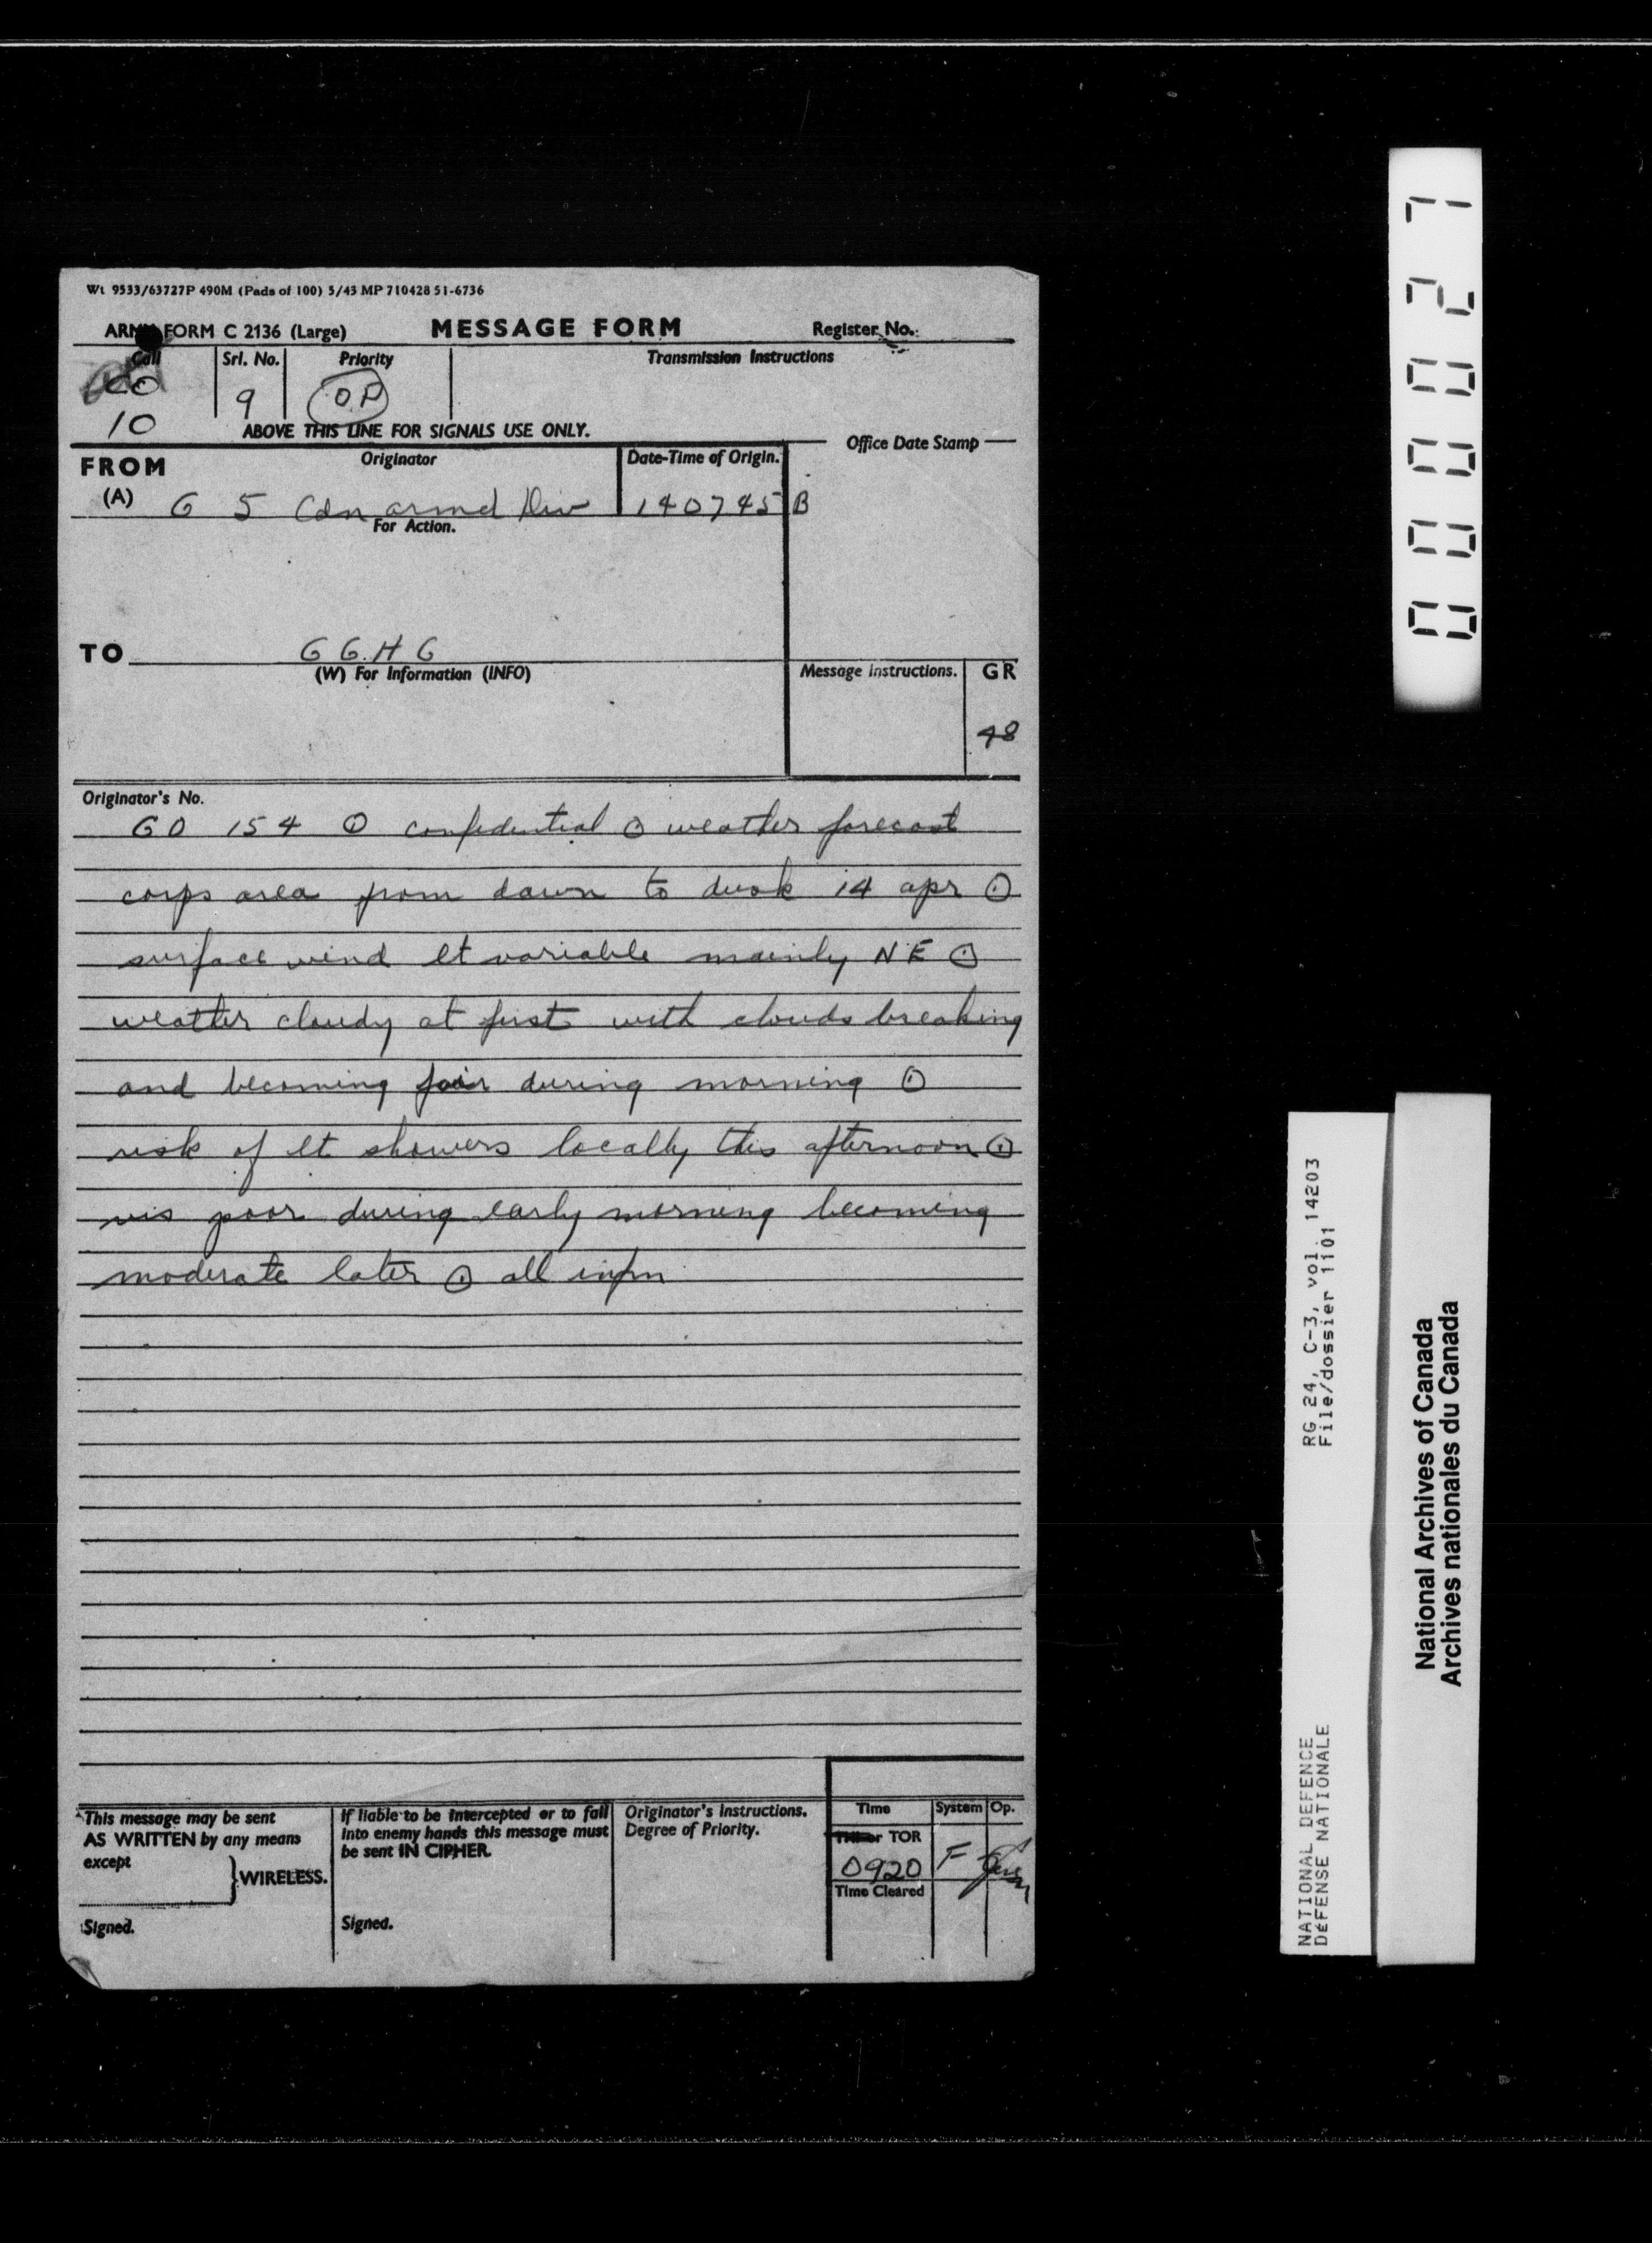 Wt 9533/63727P 490M (Pads of 100) 5/43 MP 710428 51-6736
ARMY FORM C 2136 (Large) MESSAGE FORM Register No.
Call Srl. No. Priority Transmission Instructions
CO 9 OP
10 ABOVE THIS LINE FOR SIGNALS USE ONLY.
Office Date Stamp
FROM Originator Date-Time of Origin.
(A) G 5 Cdn armd Div 140745 B
For Action.
TO GGHG
(W) For Information (INFO) Message Instructions. GR
48
Originator's No.
GO 154 ⊙ confidential ⊙ weather forecast
corps area from dawn to dusk 14 apr ⊙
surface wind lt variable mainly NE ⊙
weather cloudy at first with clouds breaking
and becoming fair during morning ⊙
risk of lt showers locally this afternoon ⊙
vis poor during early morning becoming
moderate later ⊙ all infm
This message may be sent If liable to be intercepted or to fall Originator's Instructions. Time System Op.
AS WRITTEN by any means into enemy hands this message must Degree of Priority. THI or TOR
except be sent IN CIPHER.
WIRELESS. 0920 F
Time Cleared
Signed. Signed.
0000027
RG 24, C-3, vol. 14203
File/dossier 1101
NATIONAL DEFENCE
DÉFENSE NATIONALE
National Archives of Canada
Archives nationales du Canada